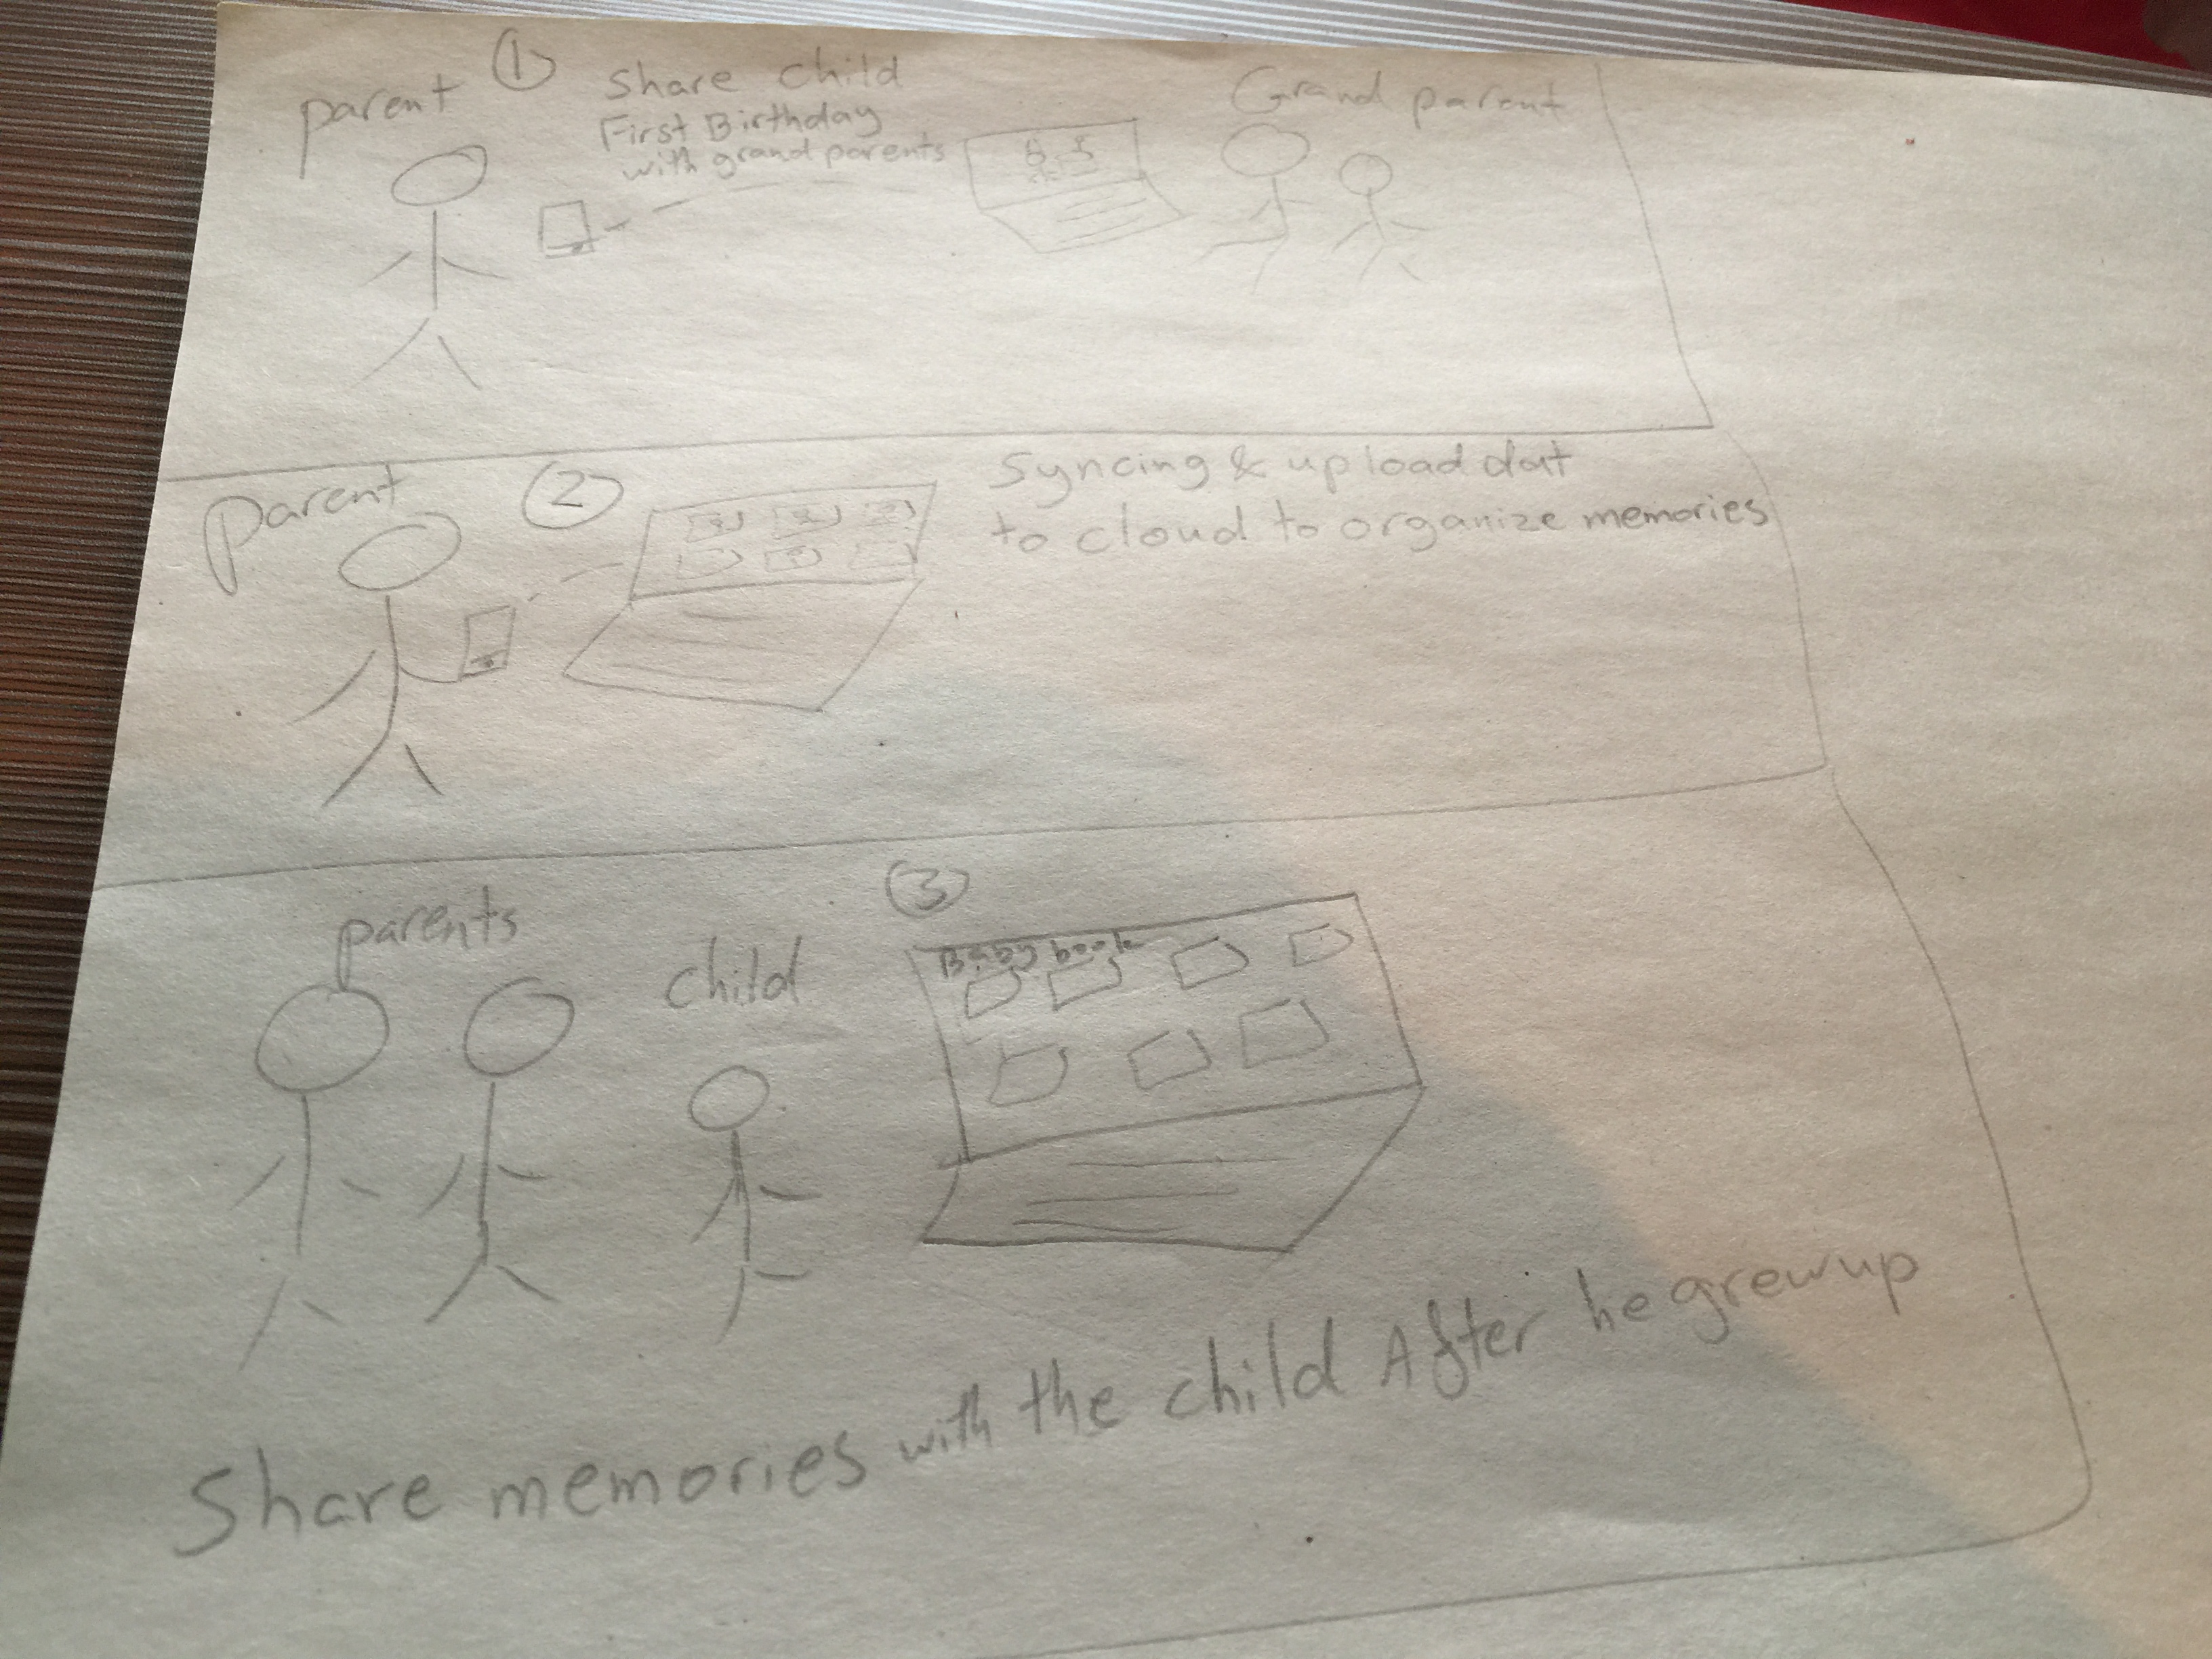 parent
①
Share child
First Birthday
with grandparents
Grand parent
parent
②
Syncing & upload dat
to cloud to organize memories
parents
child
③
Baby book
Share memories with the child After he grew up